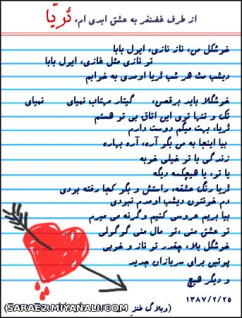 از طرف غضنفر به عشق ابدی ام، ثُریّا
خوشگل من، ناز نازی، ایول بابا
تو نازی مثل غازی، ایول بابا
دیشب مث هر شب ثریا اومدی به خوابم
خوشگلا باید برقصن، گیتار مهتاب نمیای نمیای
تک و تنها توی این اتاق بی تو هستم
ثریا، بهت میگم دوست دارم
بیا اینجا به من بگو آره، آره بهاره
زندگی با تو خیلی خوبه
یا تو، یا هیچکسه دیگه
ثریا رنگ عشقه، راستش و بگو کجا رفته بودی
دم خونتون دیشب اومدم نبودی
بیا بریم عروسی کنیم وگرنه می میرم
تو عشق منی ،تو مال منی گوگولی
خوشگل بلا، چقدر تو ناز و خوبی
پوتین برای سربازان جدید
و دیگر هیچ
۱۳۸۷/۲/۲۵
(وبلاگ طنز
SARAEZ.MIYANALI.COM)